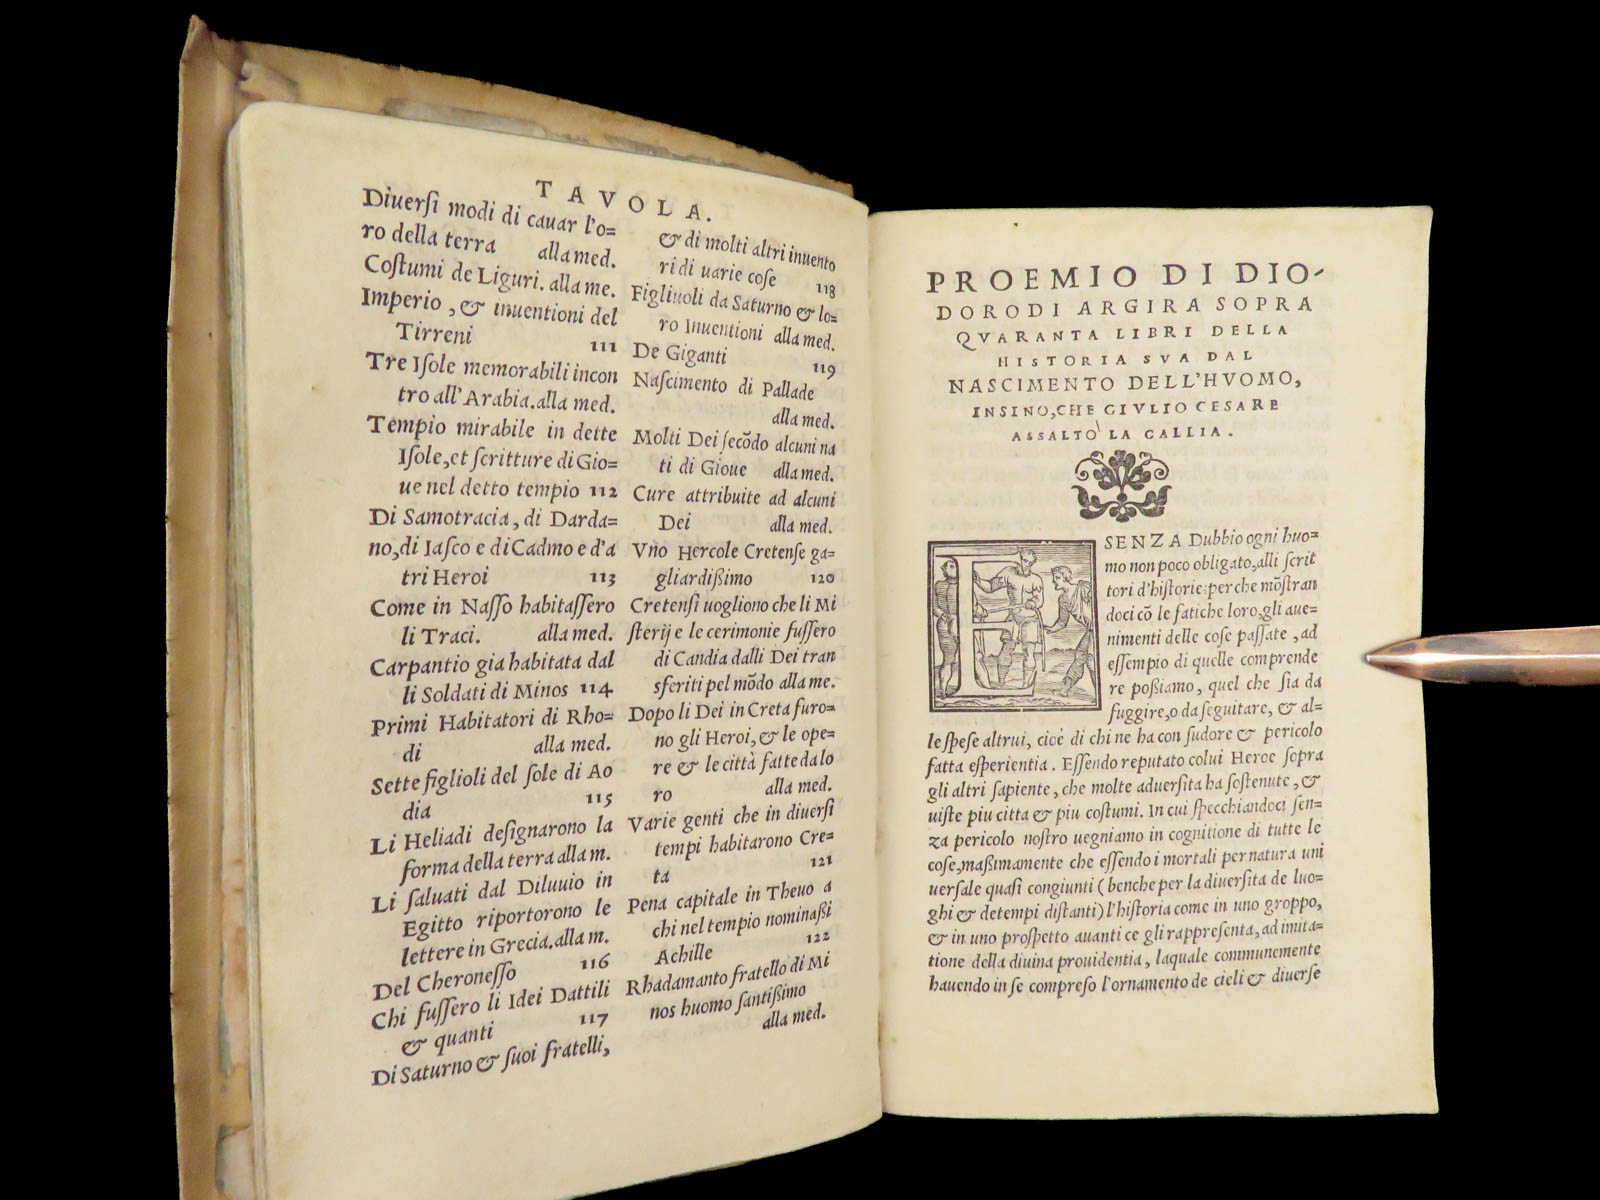 TAVOLA.
Diuerſi modi di cauar l'o=
ro della terra alla med.
Coſtumi de Liguri. alla me.
Imperio, & inuentioni del
Tirreni 111
Tre Iſole memorabili incon
tro all'Arabia. alla med.
Tempio mirabile in dette
Iſole, et ſcritture di Gio=
ue nel detto tempio 112
Di Samotracia, di Darda=
no, di Iaſco e di Cadmo e d'a
tri Heroi 113
Come in Naſſo habitaſſero
li Traci. alla med.
Carpantio gia habitata dal
li Soldati di Minos 114
Primi Habitatori di Rho=
di alla med.
Sette figlioli del ſole di Ao
dia 115
Li Heliadi deſignarono la
forma della terra alla m.
Li ſaluati dal Diluuio in
Egitto riportorono le
lettere in Grecia. alla m.
Del Cheroneſſo 116
Chi fuſſero li Idei Dattili
& quanti 117
Di Saturno & ſuoi fratelli,
& di molti altri inuento
ri di uarie coſe 118
Figliuoli da Saturno & lo=
ro Inuentioni alla med.
De Giganti 119
Naſcimento di Pallade
alla med.
Molti Dei ſecōdo alcuni na
ti di Gioue alla med.
Cure attribuite ad alcuni
Dei alla med.
Vno Hercole Cretenſe ga=
gliardißimo 120
Cretenſi uogliono che li Mi
ſterij e le cerimonie fuſſero
di Candia dalli Dei tran
sferiti pel mōdo alla me.
Dopo li Dei in Creta furo=
no gli Heroi, & le ope=
re & le città fatte da lo
ro alla med.
Varie genti che in diuerſi
tempi habitarono Cre=
ta 121
Pena capitale in Theuo a
chi nel tempio nominaßi
Achille 122
Rhadamanto fratello di Mi
nos huomo ſantißimo
alla med.
PROEMIO DI DIO-
DORO DI ARGIRA SOPRA
QVARANTA LIBRI DELLA
HISTORIA SVA DAL
NASCIMENTO DELL'HVOMO,
INSINO, CHE GIVLIO CESARE
ASSALTO\ LA GALLIA.
SENZA Dubbio ogni huo=
mo non poco obligato, alli ſcrit
tori d'hiſtorie: perche mōſtran
doci cō le fatiche loro, gli aue=
nimenti delle coſe paſſate, ad
eſſempio di quelle comprende
re poßiamo, quel che ſia da
fuggire, o da ſeguitare, & al=
le ſpeſe altrui, cioè di chi ne ha con ſudore & pericolo
fatta eſperientia. Eſſendo reputato colui Heroe ſopra
gli altri ſapiente, che molte aduerſita ha ſoſtenute, &
uiſte piu citta & piu coſtumi. In cui ſpecchiandoci ſen=
za pericolo noſtro uegniamo in cognitione di tutte le
coſe, maßimamente che eſſendo i mortali per natura uni
uerſale quaſi congiunti (benche per la diuerſita de luo=
ghi & detempi diſtanti) l'hiſtoria come in uno groppo,
& in uno proſpetto auanti ce gli rappreſenta, ad imita=
tione della diuina prouidentia, laquale communemente
hauendo in ſe compreſo l'ornamento de cieli & diuerſe